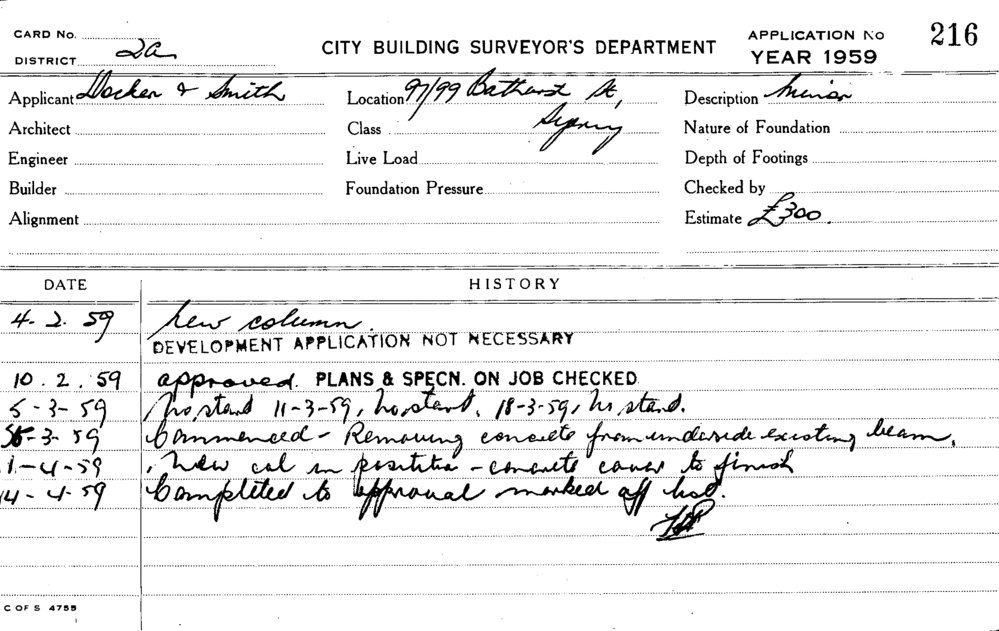 CARD No.
DISTRICT 2a
CITY BUILDING SURVEYOR'S DEPARTMENT
APPLICATION No 216
YEAR 1959
Applicant Docker & Smith
Location 97/99 Bathurst St,
Sydney
Description Minor
Architect
Class
Nature of Foundation
Engineer
Live Load
Depth of Footings
Builder
Foundation Pressure
Checked by
Alignment
Estimate £300.
DATE HISTORY
4. 2. 59 New column.
DEVELOPMENT APPLICATION NOT NECESSARY
10. 2. 59 approved. PLANS & SPECN. ON JOB CHECKED
5-3-59 No start 11-3-59, No start, 18-3-59, No start.
-3-59 Commenced - Removing concrete from underside existing beam,
1-4-59 New col in position - concrete cover to finish
14-4-59 Completed to approval marked off
C OF S 4755